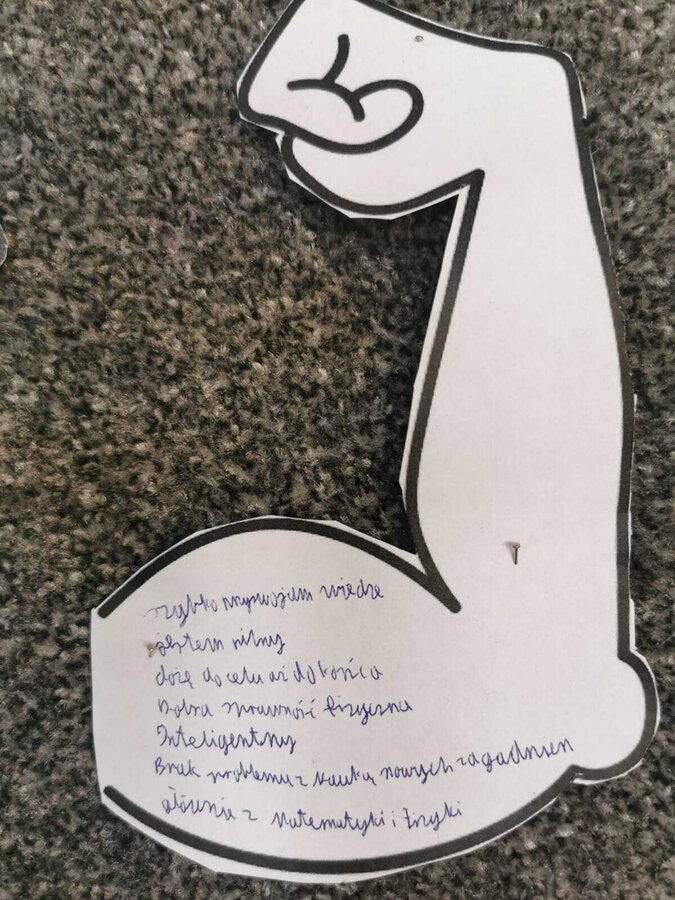 szybko przyswajam wiedze
jestem pilny
dożę do celu aż do końca
Dobra sprawność fizyczna
Inteligentny
Brak problemu z nauką nowych zagadnien
głównie z Matematyki i fizyki